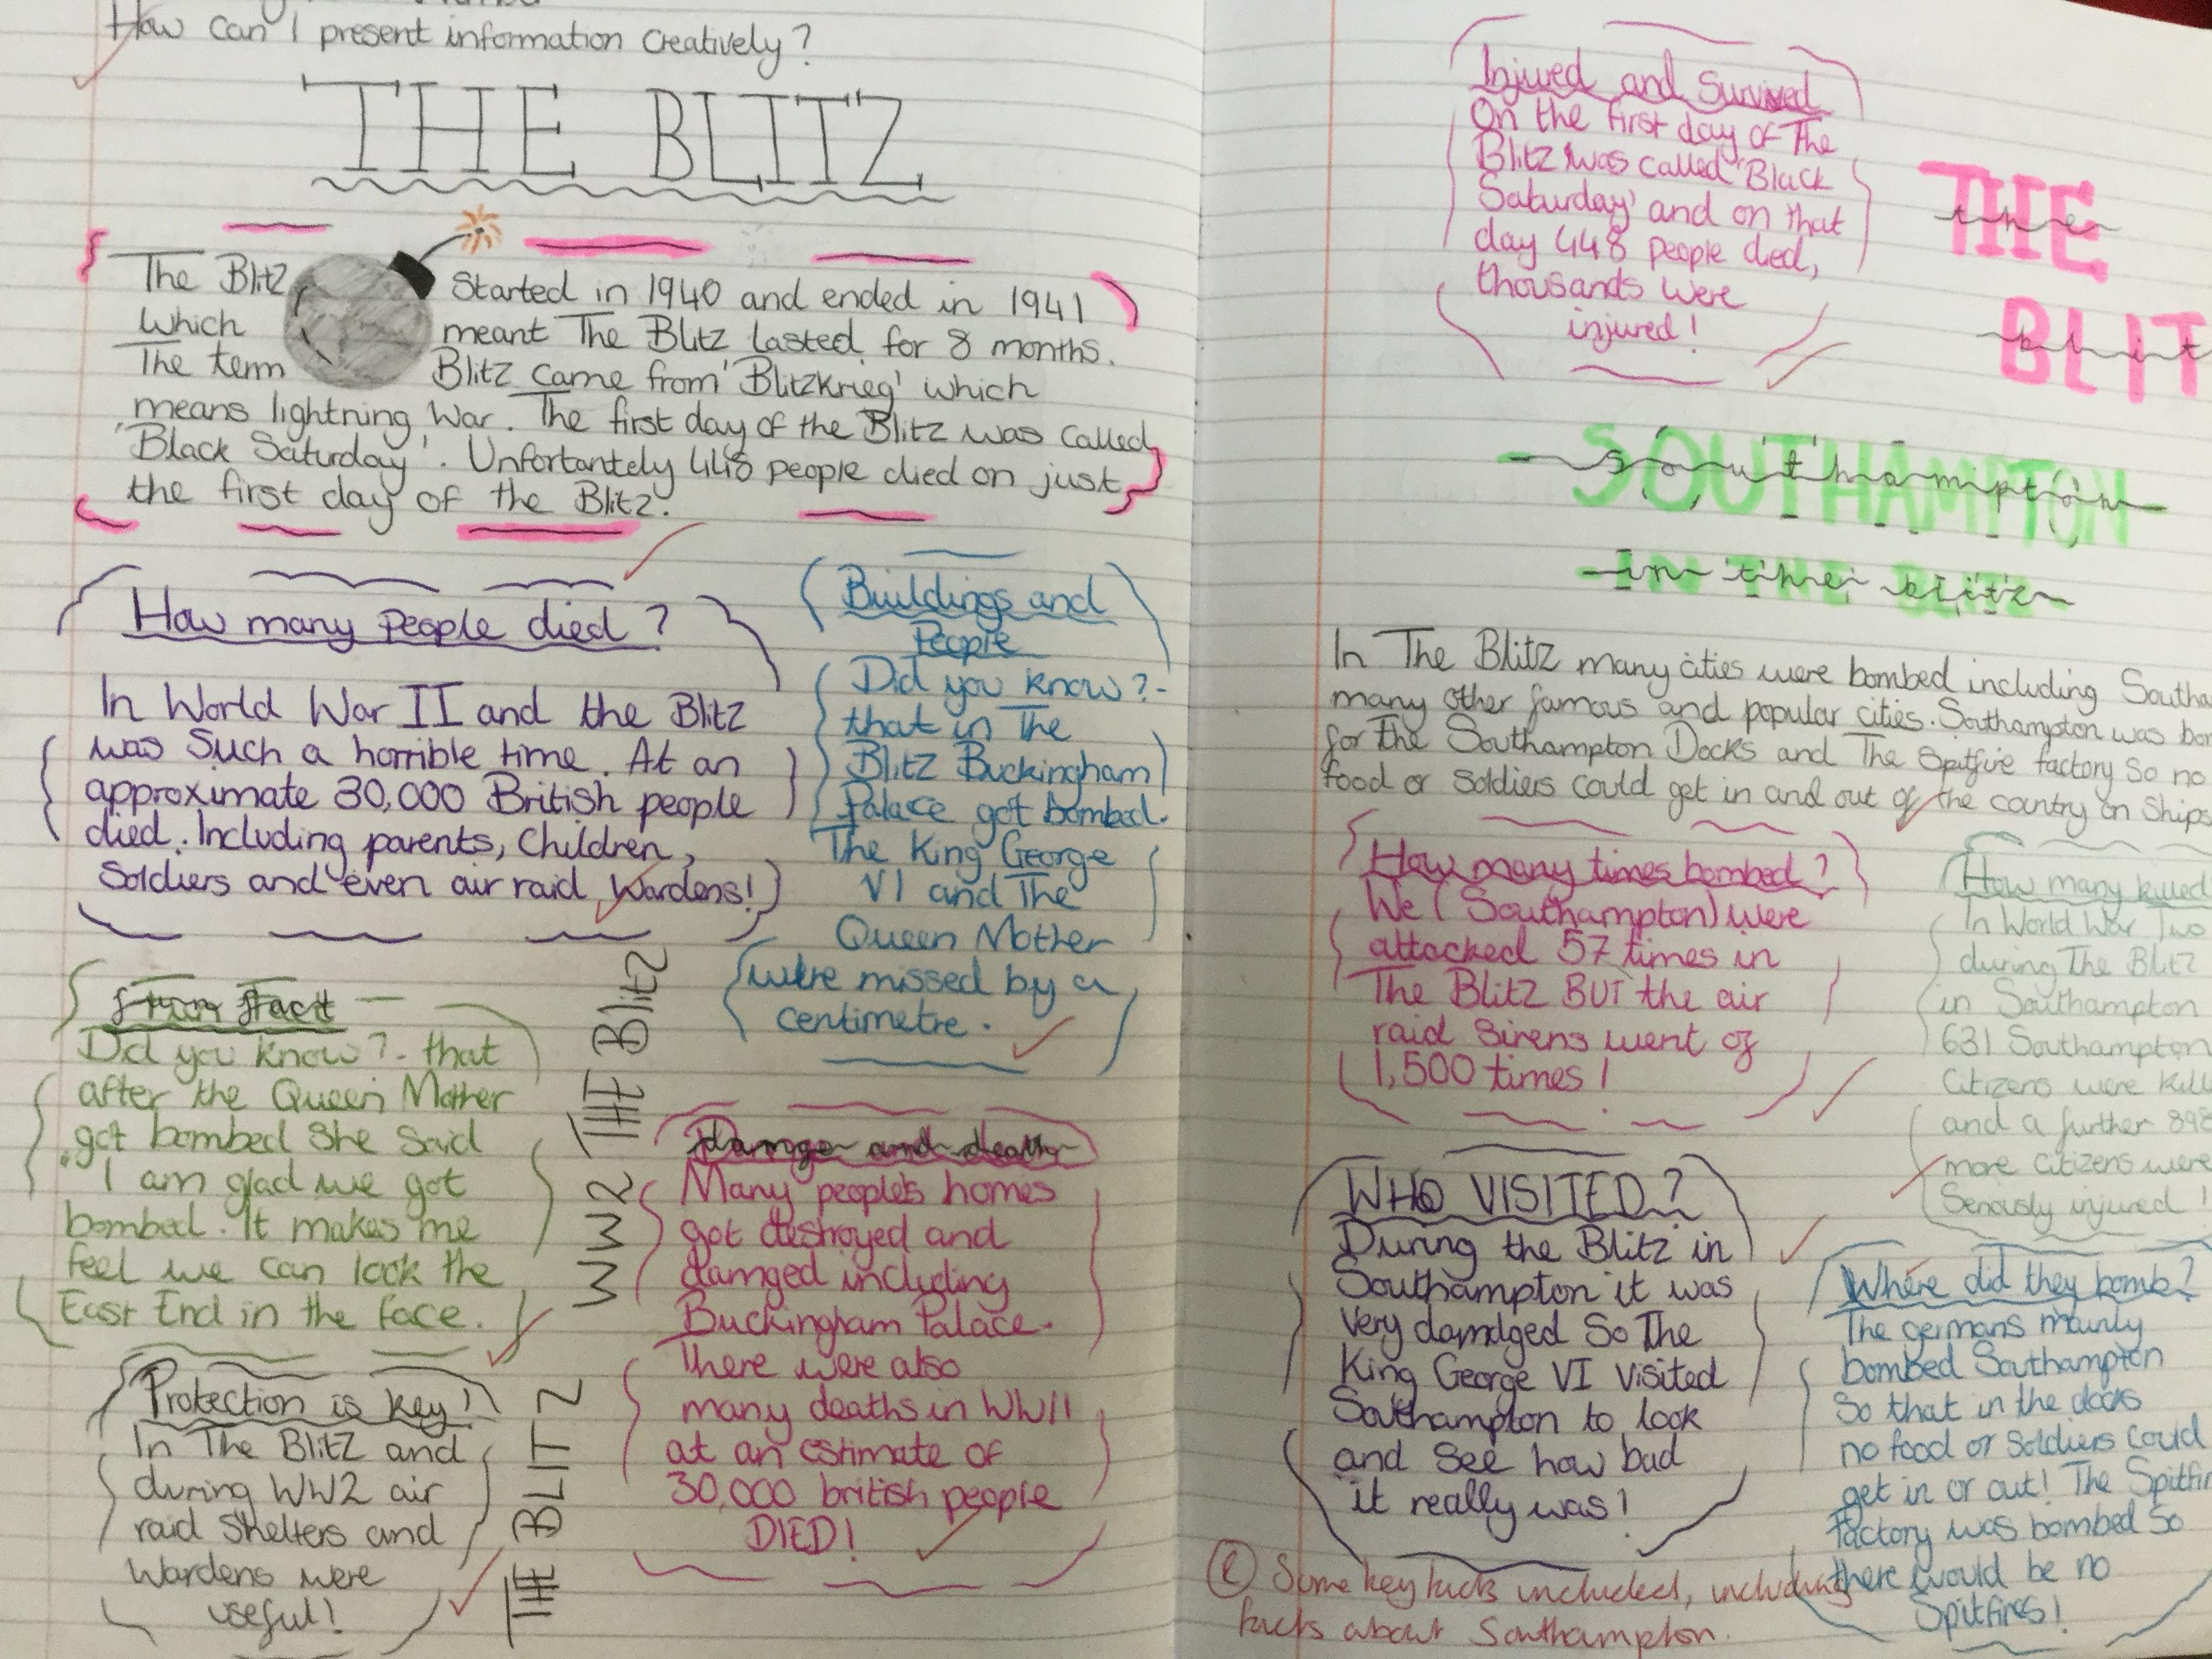 How can I present information creatively?
THE BLITZ
The Blitz started in 1940 and ended in 1941
which meant The Blitz lasted for 8 months.
The term Blitz came from 'Blitzkrieg' which
means lightning war. The first day of the Blitz was called
'Black Saturday'. Unfortantely 448 people died on just
the first day of the Blitz.
How many people died?
In World War II and the Blitz
was such a horrible time. At an
approximate 30,000 British people
died. Including parents, children,
soldiers and even air raid wardens!
Buildings and
People
Did you know?-
that in The
Blitz Buckingham
Palace got bombed.
The King George
VI and The
Queen Mother
were missed by a
centimetre.
fact
Did you know?- that
after the Queen Mother
got bombed she said
I am glad we got
bombed. It makes me
feel we can look the
East End in the face.
Protection is key!
In The Blitz and
during WW2 air
raid shelters and
wardens were
useful!
WW2 THE Blitz
THE BLITZ
Damge and death
Many people's homes
got destroyed and
damged including
Buckingham Palace.
There were also
many deaths in WWII
at an estimate of
30,000 british people
DIED!
Injured and Survived
On the first day of The
Blitz was called 'Black
Saturday' and on that
day 448 people died,
thousands were
injured!
THE
the
BLIT
blit
SOUTHAMPTON
southampton
IN THE BLITZ
in the blitz
In The Blitz many cities were bombed including Southa
many other famous and popular cities. Southampton was bom
for the Southampton Docks and The Spitfire factory so no
food or soldiers could get in and out of the country on ships
How many times bombed?
We (Southampton) were
attacked 57 times in
The Blitz BUT the air
raid sirens went of
1,500 times!
How many killed
In World War Two
during The Blitz
in Southampton
631 Southampton
citizens were kill
and a further 898
more citizens were
seriously injured!
WHO VISITED?
During the Blitz in
Southampton it was
very damdged so The
King George VI visited
Southampton to look
and see how bad
it really was!
Where did they bomb?
The germans mainly
bombed Southampton
so that in the docks
no food or soldiers could
get in or out! The Spitfir
factory was bombed so
there would be no
Spitfires!
Some key facts included, including
facts about Southampton.